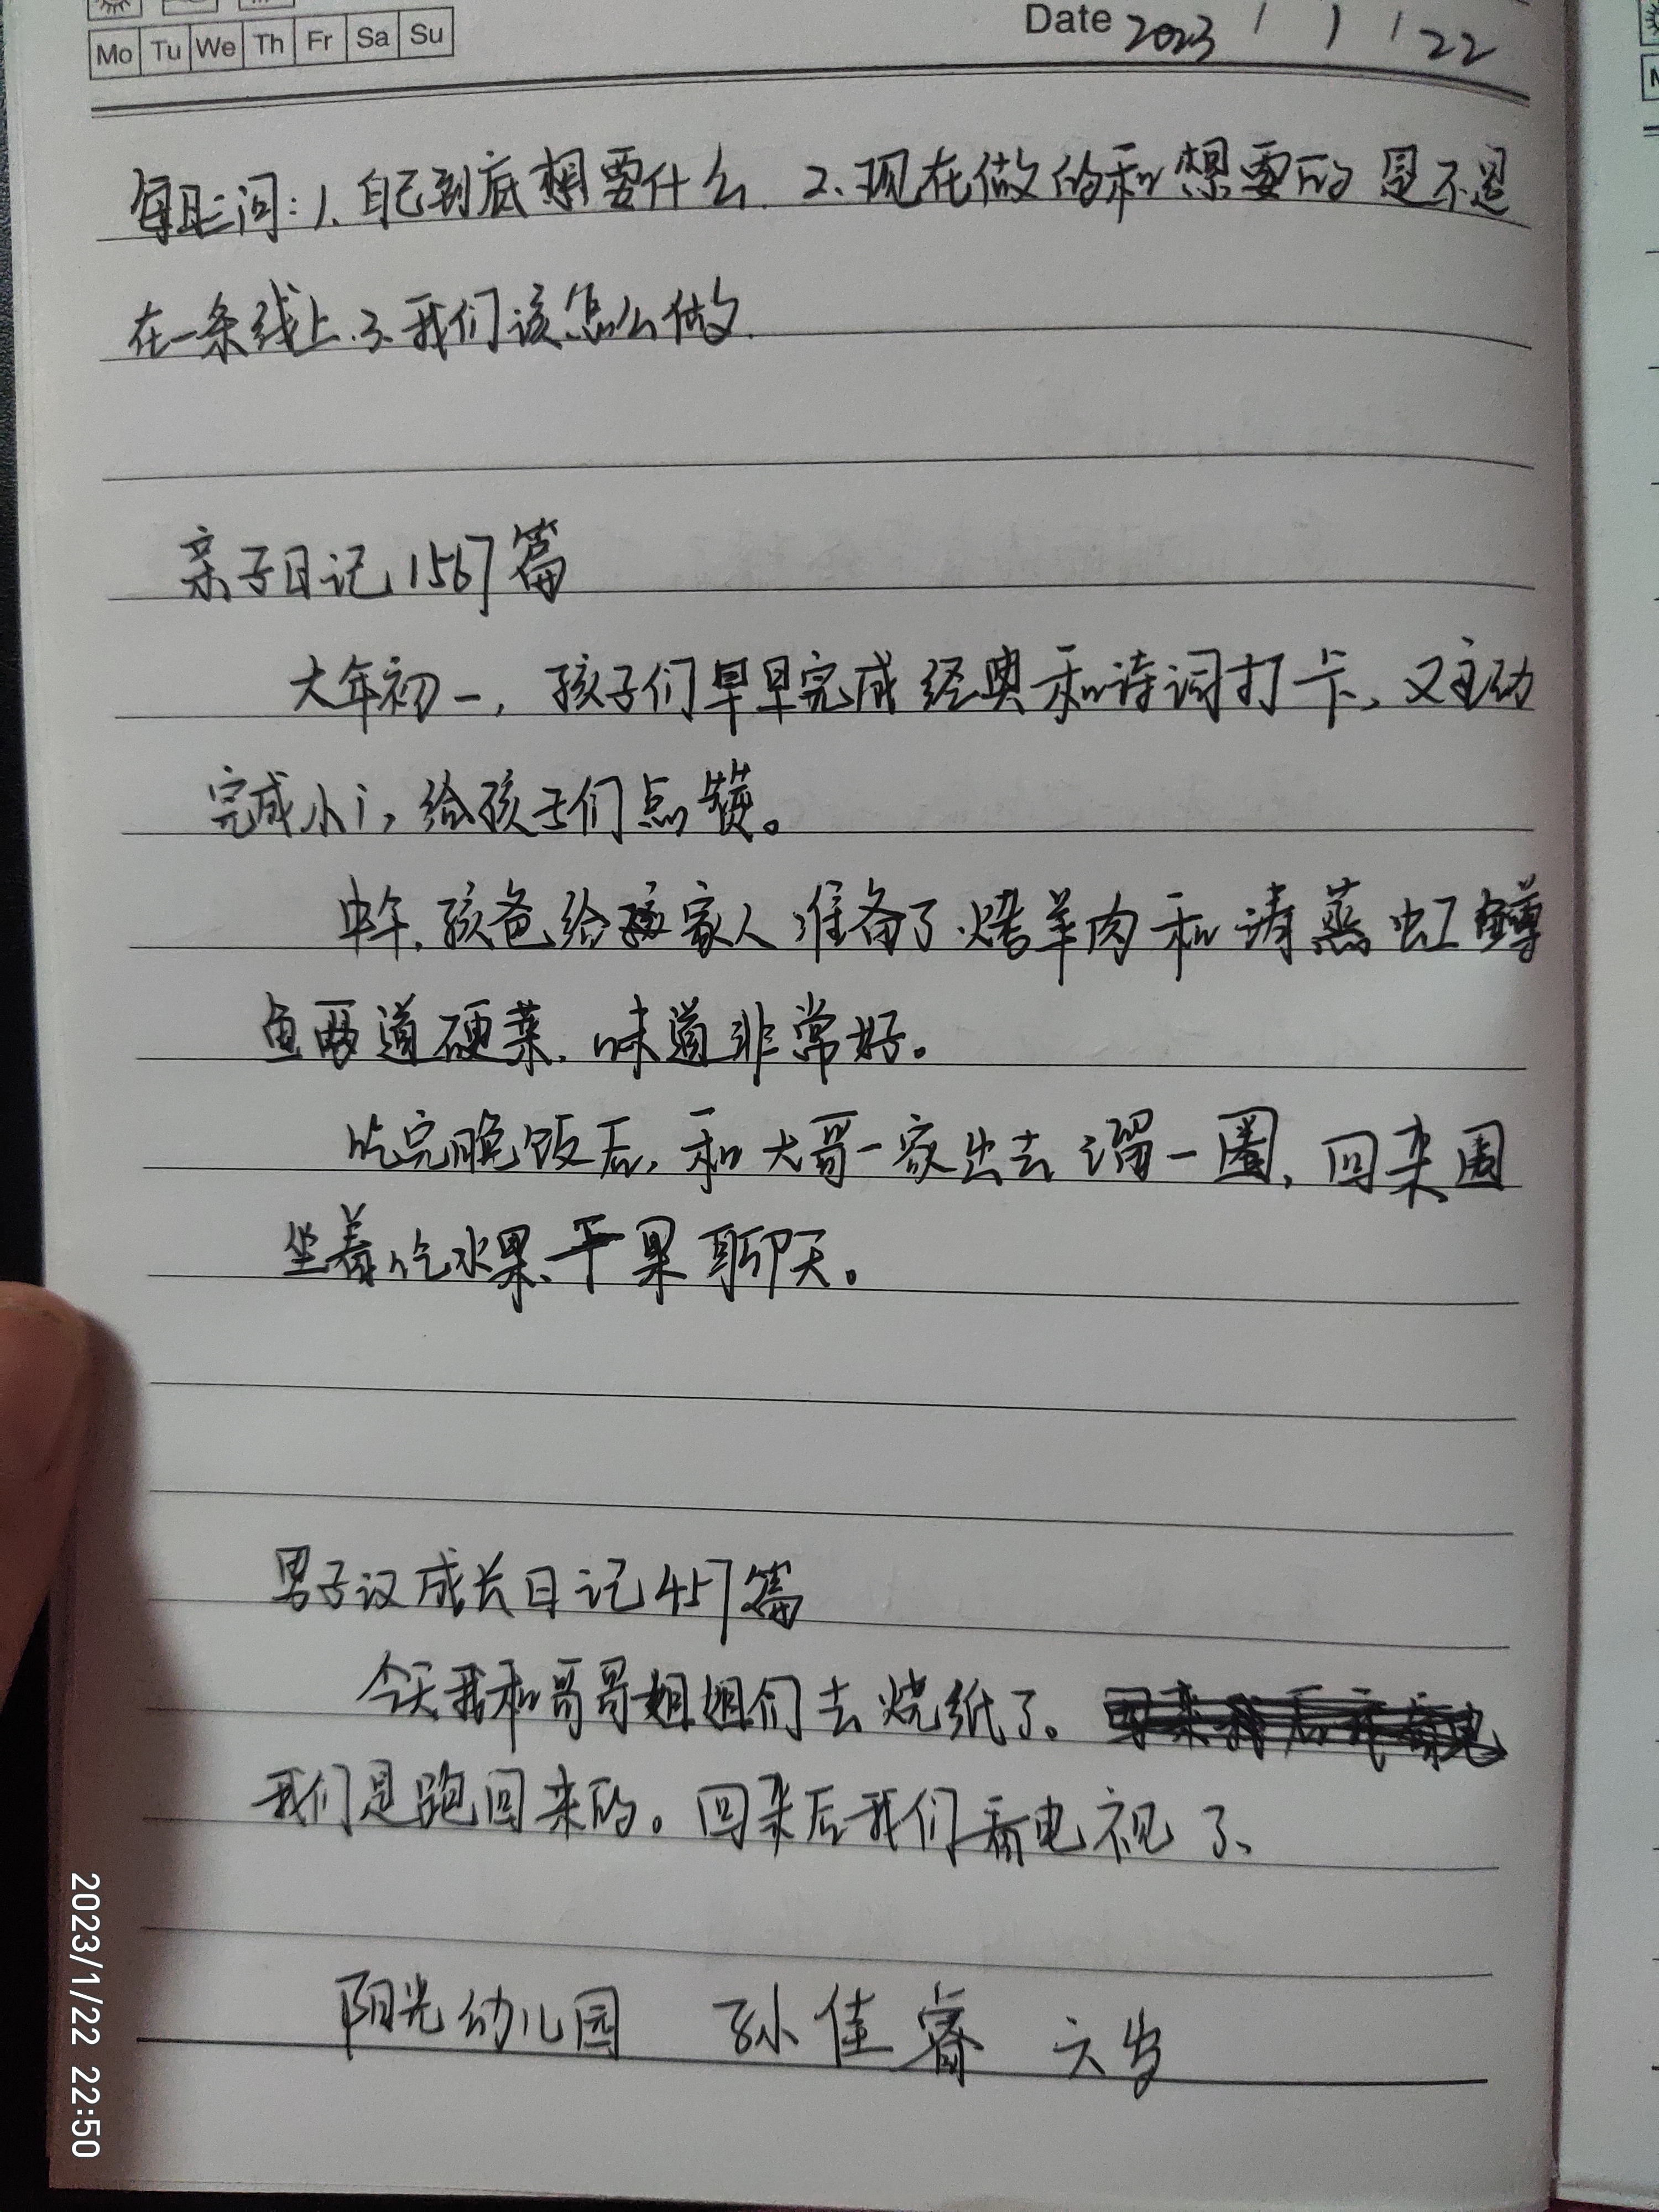 Mo Tu We Th Fr Sa Su
Date 2023 / 1 / 22
每日三问:1.自己到底想要什么.2.现在做的和想要的是不是
在一条线上.3.我们该怎么做.
亲子日记1567篇
大年初一,孩子们早早完成经典和诗词打卡,又主动
完成小i,给孩子们点赞。
中午,孩爸给家人准备了烤羊肉和清蒸虹鳟
鱼两道硬菜,味道非常好。
吃完晚饭后,和大哥一家出去溜一圈,回来围
坐着吃水果、干果聊天。
男子汉成长日记457篇
今天我和哥哥姐姐们去烧纸了。
我们是跑回来的。回来后我们看电视了、
阳光幼儿园 孙佳睿 六岁
2023/1/22 22:50